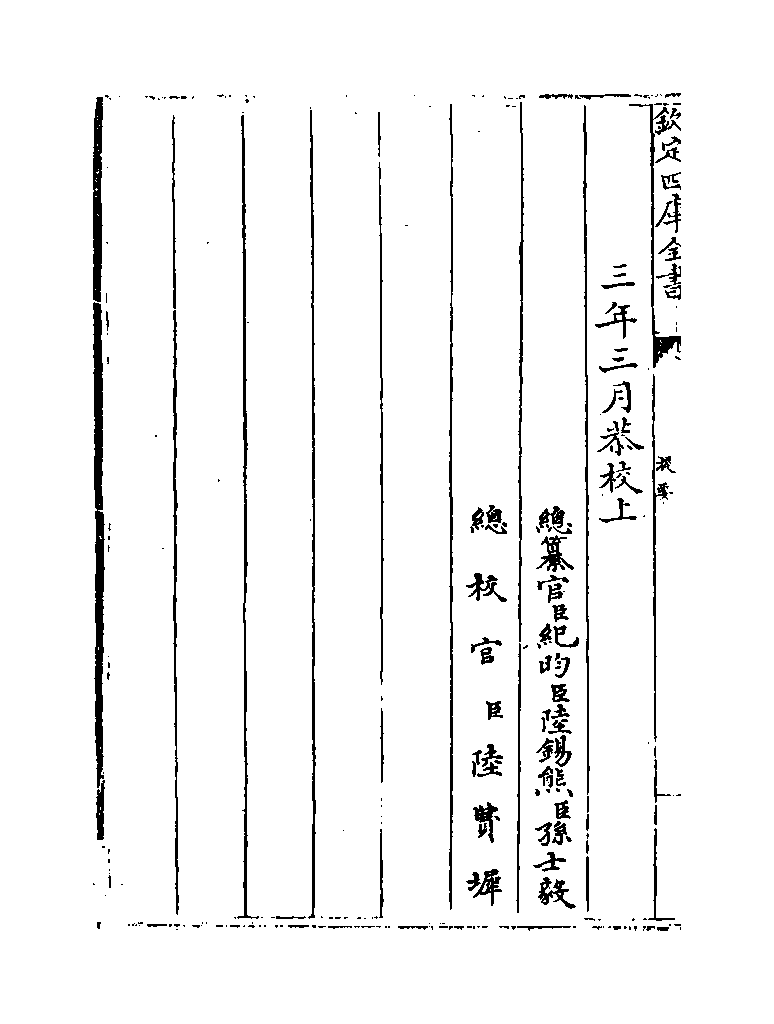 欽定四庫全書
提要
三年三月恭校上
總纂官臣紀昀臣陸錫熊臣孫士毅
總校官臣陸費墀